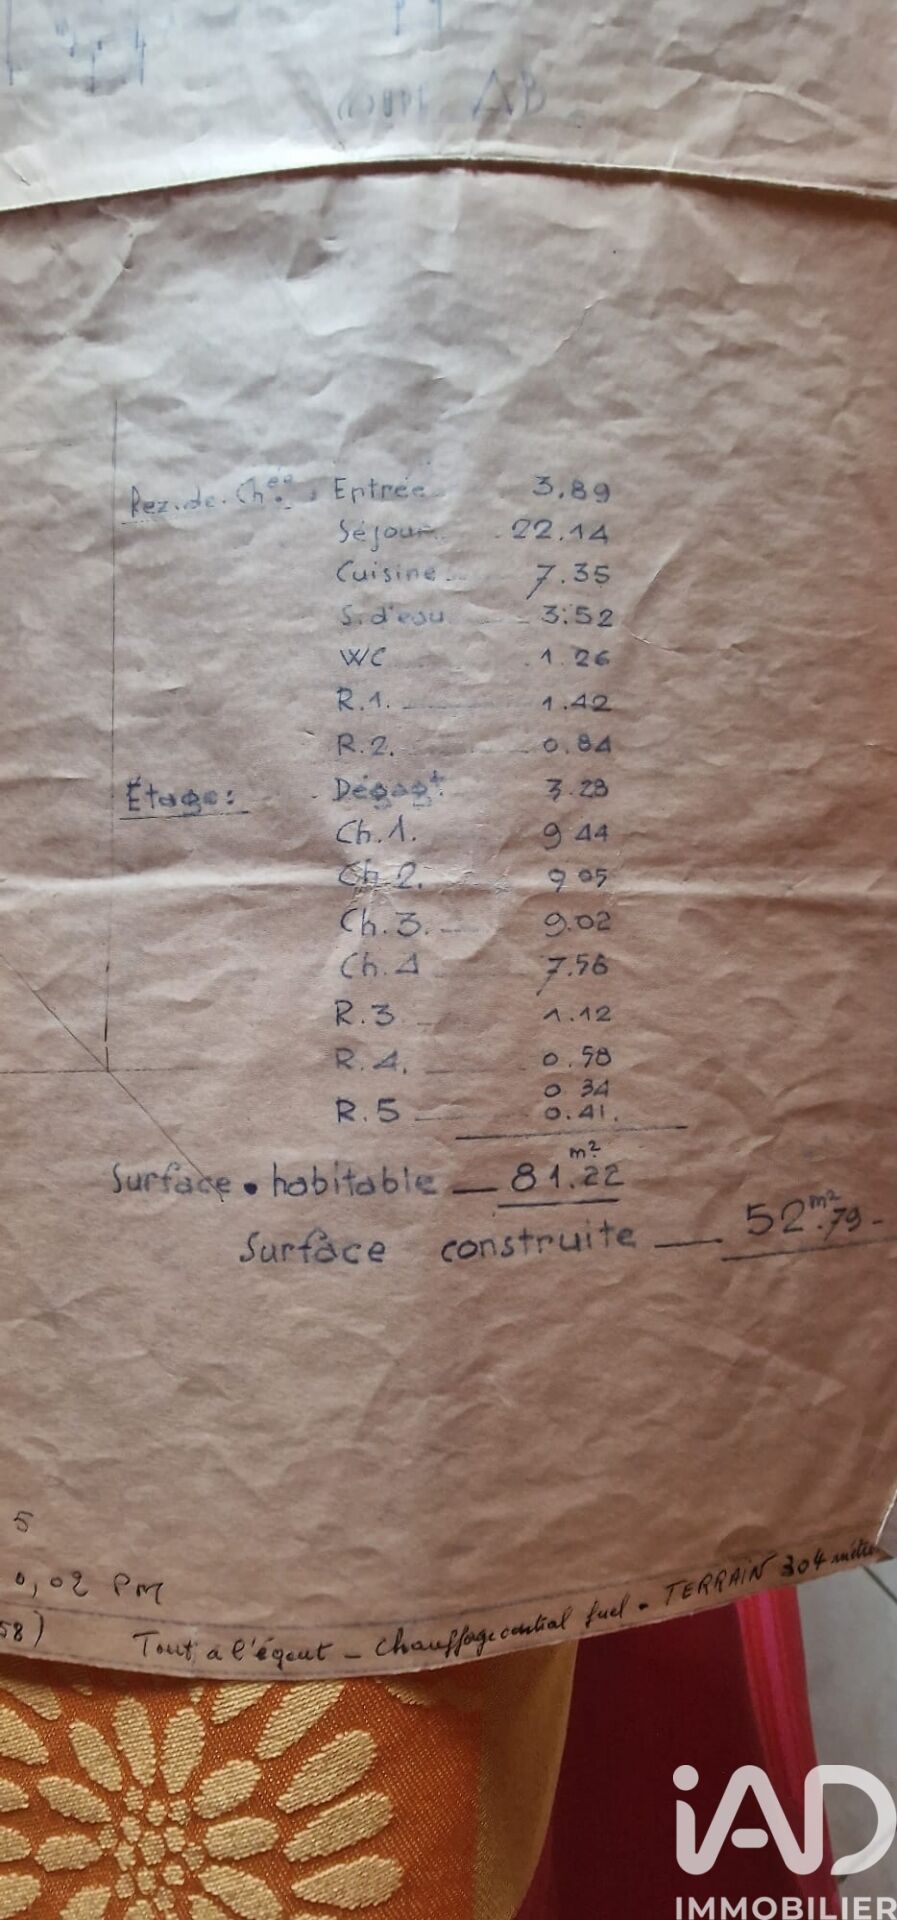 COUPE AB
Rez.de.Chée: Entrée 3.89
Séjour 22.14
Cuisine 7.35
S.d'eau 3.52
WC 1.26
R.1. 1.42
R.2. 0.84
Étage: Dégagt. 3.28
Ch.1. 9 44
Ch 2. 9 05
Ch.3. 9.02
Ch.4 7.56
R.3 1.12
R.4. 0.58
0 34
R.5 0.41.
Surface habitable 81.22 m²
Surface construite 52 m².79
5
0,02 PM
58)
Tout à l'égout - Chauffage central fuel. TERRAIN 304 mètres
iAD
IMMOBILIER